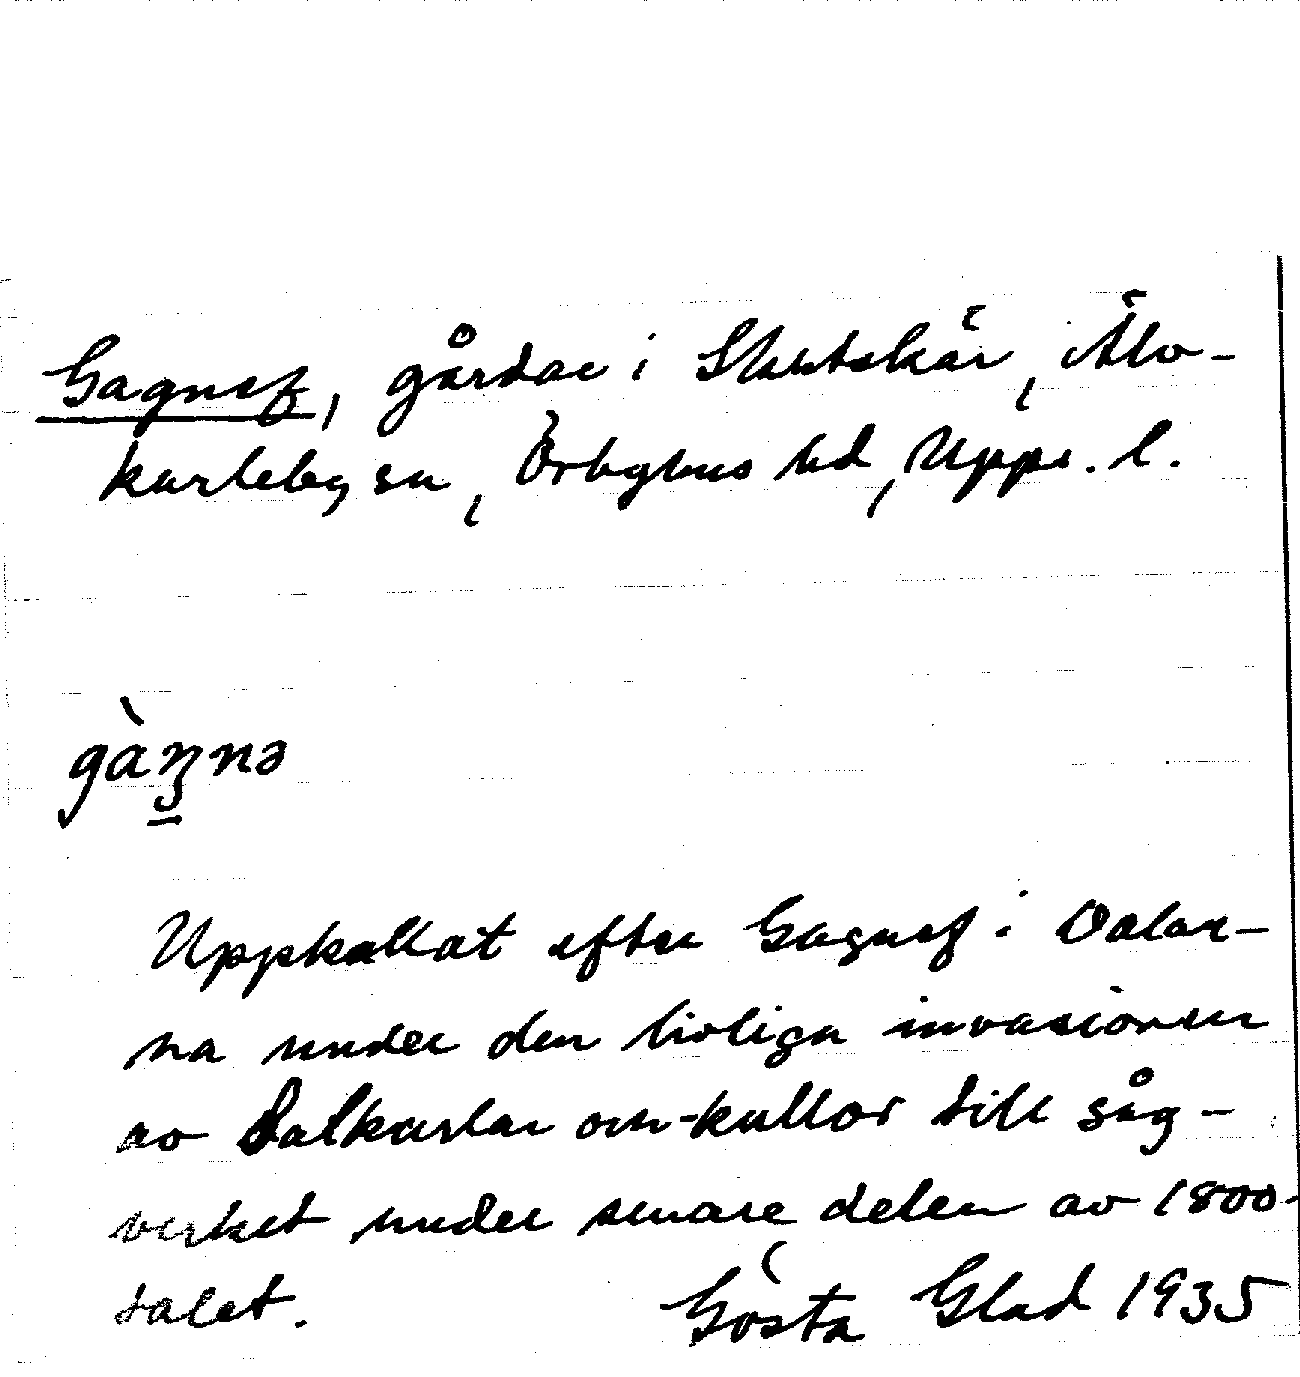 Gagnef, gårdar i Skutskär, Älv-
karleby sn, Örbyhus hd, Upps. l.
gàŋnə
Uppkallat efter Gagnef i Dalar-
na under den livliga invasionen
av Dalkarlar och -kullor till såg-
verket under senare delen av 1800-
talet.
Gösta Glad 1935